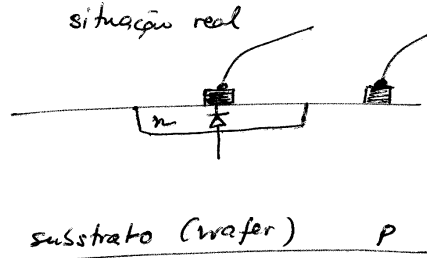 situação real
n
substrato (wafer) P